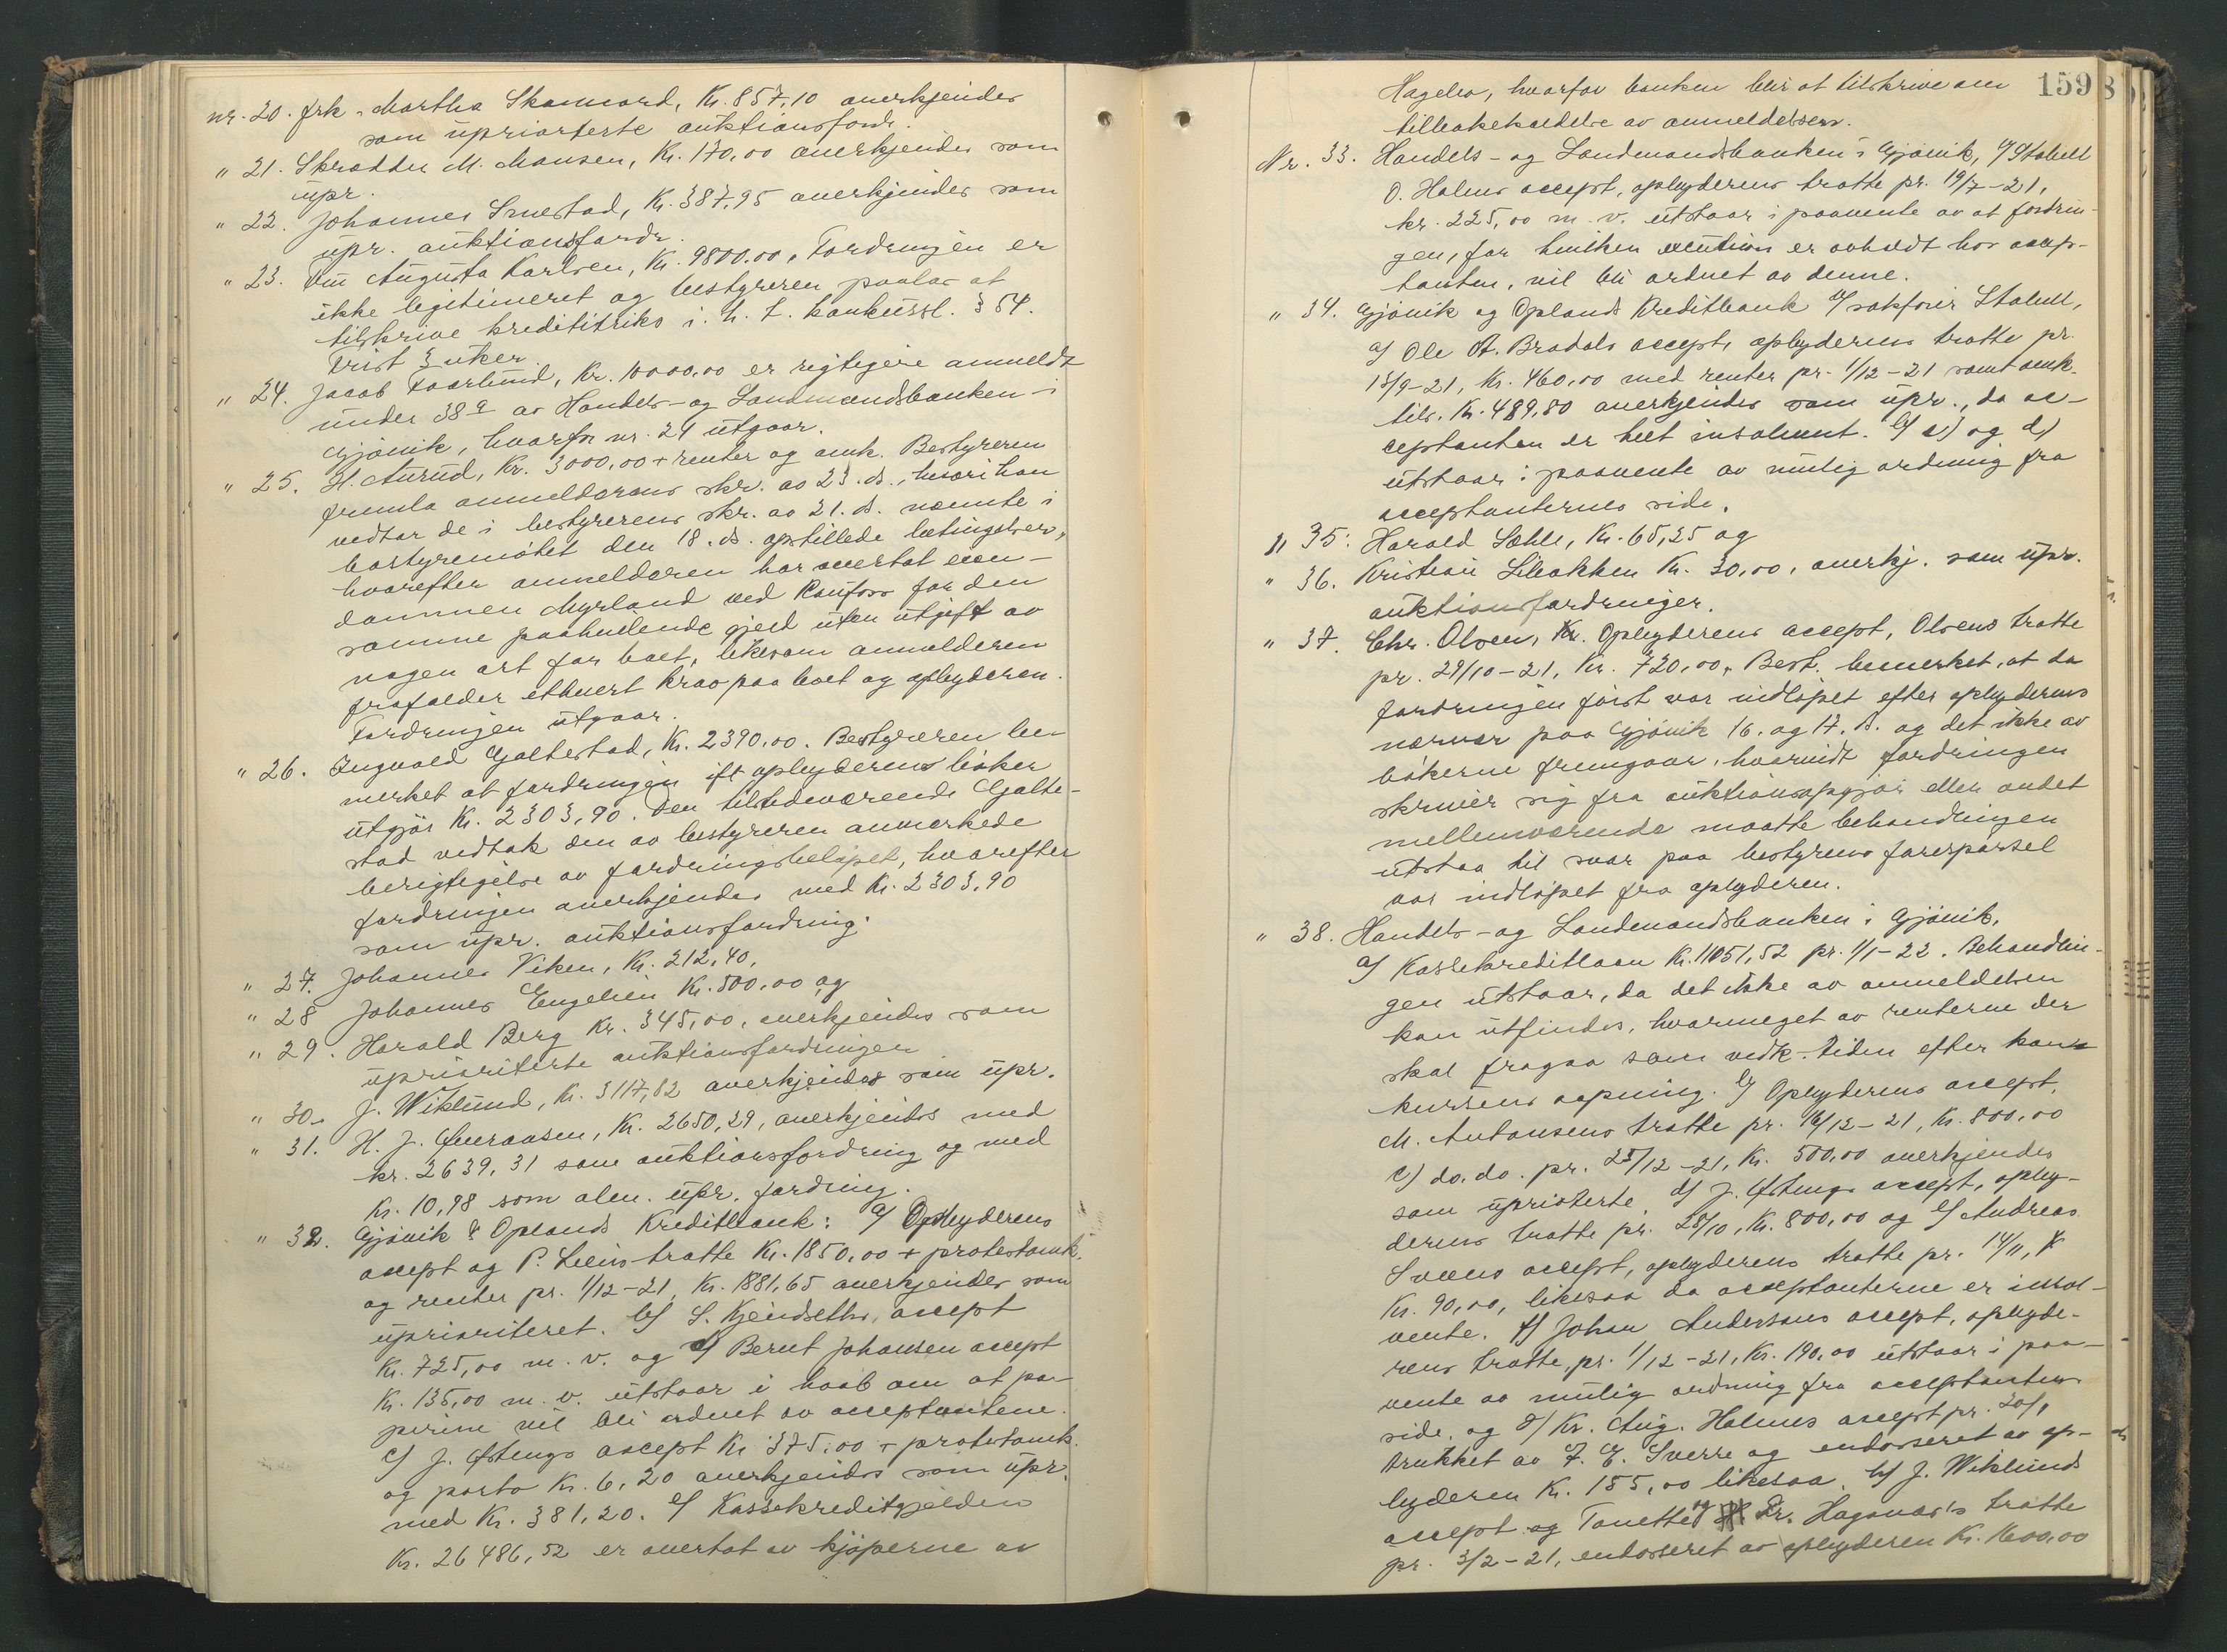 nr. 20. frk. Martha Skamsord, Kr. 857,10 anerkjendes
som upriorterte auktionsfordr.
" 21. Skrædder M. Mansen, Kr. 170,00 anerkjendes som
upr.
" 22. Johannes Smestad, Kr. 387,95 anerkjendes som
upr. auktionsfordr.
" 23. Augusta Karlsen, Kr. 9800.00. Fordringen er
ikke legitimeret og bestyreren paalas at
tilskrive kredititriks i. h. t. konkursl. § 54.
Frist 3 uker.
" 24. Jacob Faarlund, Kr. 10000,00 er rigtigere anmeldt
under 38 a av Handels- og Landmandsbanken i
Gjøvik, hvorfor nr. 24 utgaar.
" 25. H. Aurud, Kr. 3000,00 + renter og omk. Bestyreren
fremla anmelderens skr. av 23. ds., hvori han
vedtar de i bestyrerens skr. av 21. ds. nævnte i
bostyremøtet den 18. ds. opstillede betingelser,
hvorefter anmelderen har overtat eien-
dommen Myrland ved Raufoss for den
samme paahvilende gjeld uten utgift av
nogen art for boet, likesom anmelderen
frafalder ethvert krav paa boet og opbyderen.
Fordringen utgaar.
" 26. Ingvald Galtestad, Kr. 2390,00. Bestyreren be-
merket at fordringen ift opbyderens bøker
utgjør Kr. 2303,90. Den tilstedeværende Galte-
stad vedtok den av bestyreren anmerkede
berigtigelse av fordringsbeløpet, hvorefter
fordringen anerkjendes med Kr. 2303,90
som upr. auktionsfordring.
" 27. Johannes Viken, Kr. 212,40,
" 28 Johannes Engelien Kr. 500,00 og
" 29. Harald Berg Kr. 345,00, anerkjendes som
uprioriterte auktionsfordringer
" 30. J. Wiklund, Kr. 3117,82 anerkjendes som upr.
" 31. H. J. Øveraasen, Kr. 2650,29, anerkjendes med
kr. 2639,31 som auktionsfordring og med
Kr. 10,98 som alm. upr. fordring.
" 32. Gjøvik & Oplands Kreditbank: a/ Opbyderens
accept og P. Liens tratte Kr. 1850,00 + protestomk.
og renter pr. 1/12-21, Kr. 1881,65 anerkjendes som
uprioriteret. b/ S. Kjendseths accept
Kr. 725,00 m. v. og d/ Bernt Johansen accept
Kr. 135,00 m. v. utstaar i haab om at pa-
pirerne vil bli ordnet av acceptantene.
c/ J. Østengs accept Kr. 375,00 + protestomk.
og porto Kr. 6,20 anerkjendes som upr.
med Kr. 381,20. e/ Kassekreditgjælden
Kr. 26486,52 er overtat av kjøperne av
159
Hagelø, hvorfor banken blir at tilskrive om
tilbakekaldelse av anmeldelsen.
Nr. 33. Handels- og Landmandsbanken i Gjøvik, v/ Stabell
O. Holms accept, opbyderens tratte pr. 19/7-21,
kr. 225,00 m. v. utstaar i paavente av at fordrin-
gen, for hvilken execution er avholdt hos accep-
tanten, vil bli ordnet av denne.
" 34. Gjøvik og Oplands Kreditbank v/ sakfører Stabell,
a/ Ole A. Bradals accept, opbyderens tratte pr.
15/9-21, Kr. 460,00 med renter pr. 1/12-21 samt omk.
tils. Kr. 489,80 anerkjendes som upr., da ac-
ceptanten er helt insolvent. b/ c/ og d/
utstaar i paavente av mulig ordning fra
acceptanternes side.
" 35. Harald Sæhle, Kr. 65,25 og
" 36. Kristian Lilleakken Kr. 30,00, anerkj. som upr.
auktionsfordringer.
" 37. Chr. Olsen, Opbyderens accept, Olsens tratte
pr. 29/10-21, Kr. 720,00. Best. bemerket, at da
fordringen først var indløpet efter opbyderens
nærvær paa Gjøvik 16. og 17. ds. og det ikke av
bøkerne fremgaar, hvorvidt fordringen
skriver sig fra auktionsopgjør eller andet
mellemværende maatte behandlingen
utstaa til svar paa bestyrens forespørsel
var indløpet fra opbyderen.
" 38. Handels- og Landmandsbanken i Gjøvik,
a/ Kassekreditlaan Kr. 11051,52 pr. 1/1-22. Behandlin-
gen utstaar, da det ikke av anmeldelsen
kan utfindes, hvormeget av renterne der
skal fragaa som vedk. tiden efter kon-
kursens aapning. b/ Opbyderens accept,
M. Antonsens tratte pr. 16/12-21, Kr. 800,00
c/ do. do. pr. 25/12-21, Kr. 500,00 anerkjendes
som uprioterte. d/ J. Østengs accept, opby-
derens tratte pr. 28/10, Kr. 800,00 og e/ Andreas
Sveens accept, opbyderens tratte pr. 14/11,
Kr. 90,00, likesaa da acceptanterne er insol-
vente. f/ Johan Andersens accept, opbyde-
rens tratte, pr. 1/12-21, Kr. 190,00 utstaar i paa-
vente av mulig ordning fra acceptantens
side, og g/ Kr. Aug. Holmes accept pr. 20/1
trukket av F. E. Sverre og endosseret av op-
byderen Kr. 155,00 likesaa. h/ J. Wiklunds
accept og Tanette og Fr. Haganar's tratte
pr. 3/2-21, endosseret av opbyderen Kr. 1600,00